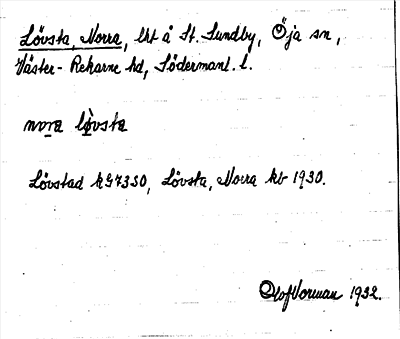 Lövsta, Norra, lht å St. Sundby, Öja sn,
Väster-Rekarne hd, Södermanl. l.
nora lòvsta
Lövstad kG73SO, Lövsta, Norra kb 1930.
Olof Vorman 1932.